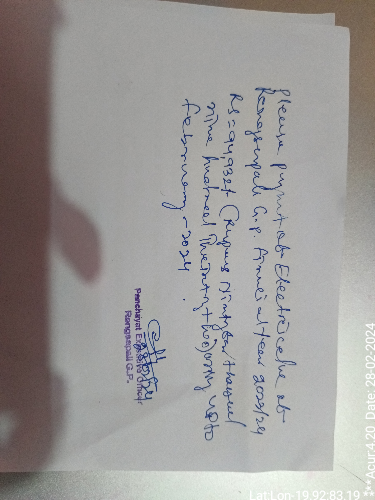 Please pymt ob Electrice
Ranguspali G.P. Annual year 2023/24
Rs = 94932/- (Rupees Ninty four thasnd
nine hundred Theinty two) only upto
february - 2024
Panchayat Executive Officer
Rangaspali G.P.
Lat:Lon-19.92:83.19
***Acur:4.20 Date: 28-02-2024